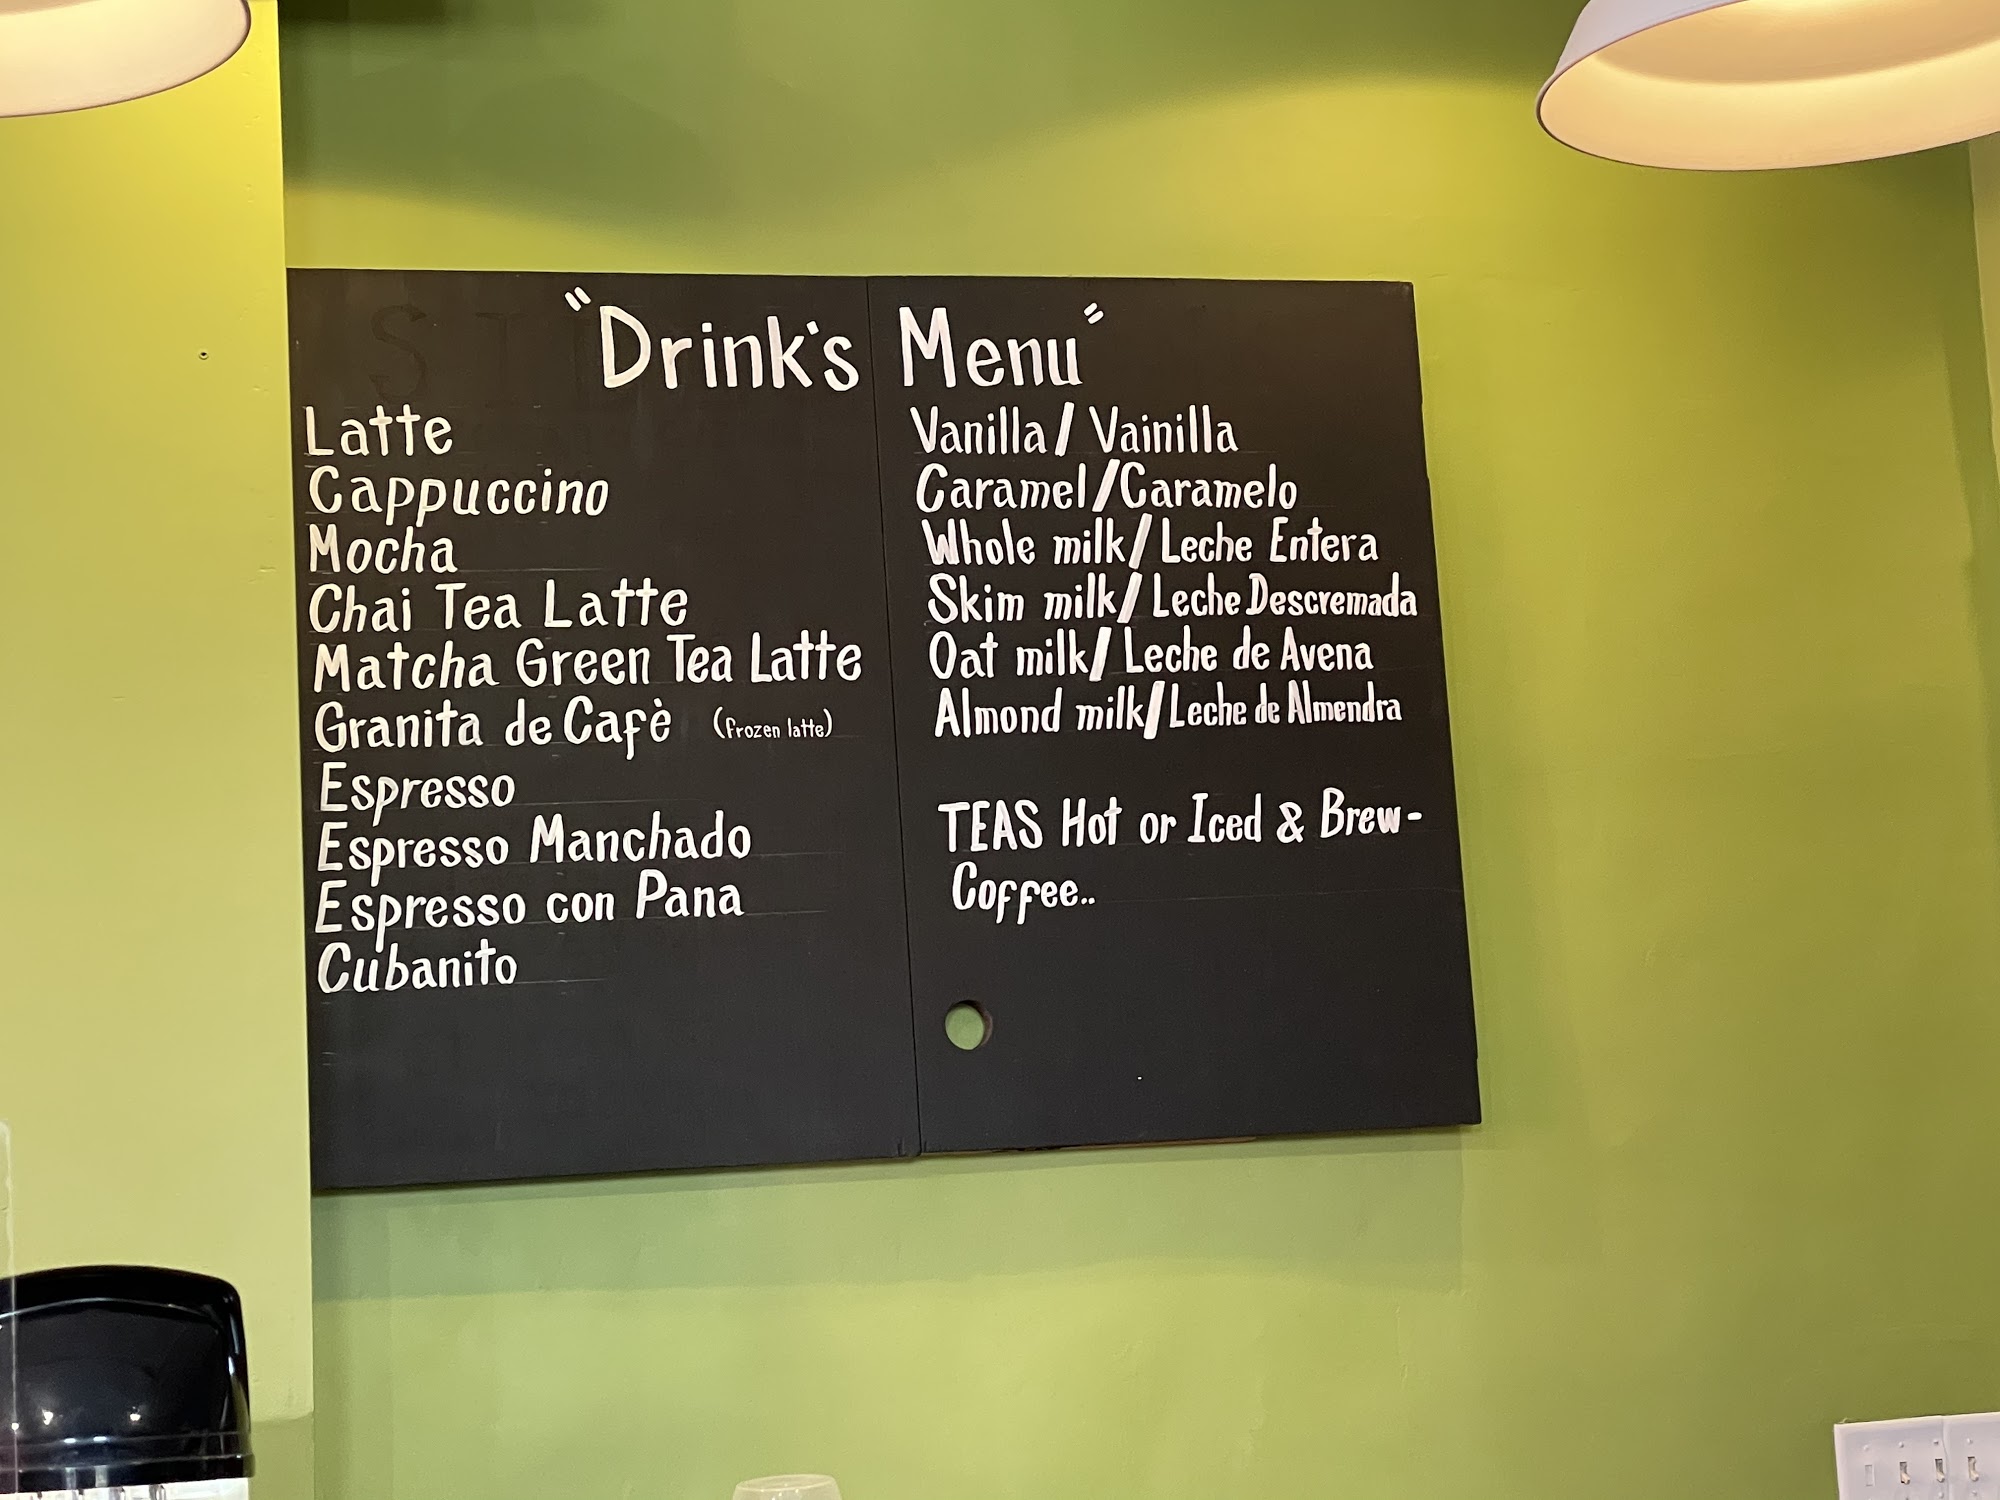 "Drink's Menu"
Latte
Cappuccino
Mocha
Chai Tea Latte
Matcha Green Tea Latte
Granita de Cafè (frozen latte)
Espresso
Espresso Manchado
Espresso con Pana
Cubanito
Vanilla / Vainilla
Caramel/Caramelo
Whole milk/Leche Entera
Skim milk/Leche Descremada
Oat milk/Leche de Avena
Almond milk/Leche de Almendra
TEAS Hot or Iced & Brew-
Coffee..